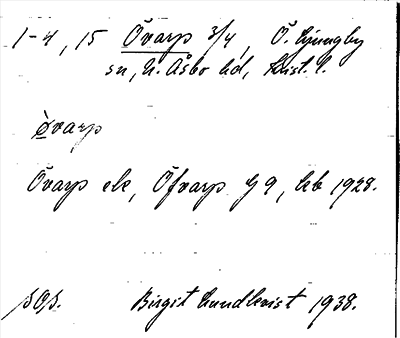 1-4, 15 Övarp 3/4, Ö. Ljungby
sn, N. Åsbo hd, Krist. l.
òvarp
Övarp ek, Öfvarp G 9, kb 1928.
SOS. Birgit Lundkvist 1938.